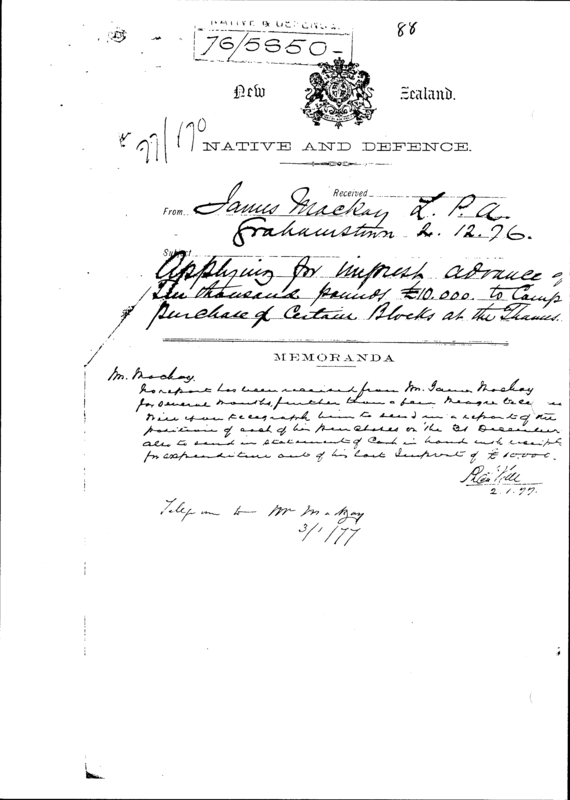 88
NATIVE & DEFENCE
76/5850
New Zealand.
77/170
NATIVE AND DEFENCE.
Received
From James Mackay L. P. A.
Grahamstown 2.12.76.
Subject
Applying for imprest advance of
Ten thousand pounds £10.000. to Comp
purchase of Certain Blocks at the Thames.
MEMORANDA
Mr. Mackay.
No report has been received from Mr. James Mackay
for several months further than a few meagre
Will you telegraph him to send in a report of the
position of each of his purchases on the 31 December
also to send in statement of Cash in hand with receipts
for expenditure out of his last Imprest of £10000.
2.1.77.
Telegram to Mr Mackay
3/1/77